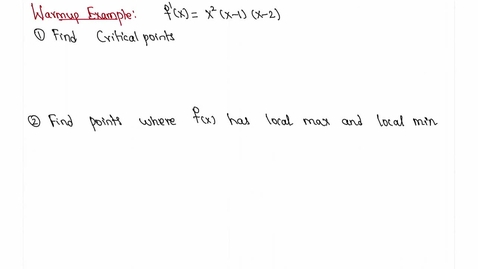 Warmup Example: f'(x) = x² (x-1) (x-2)
① Find Critical points
② Find points where f(x) has local max and local min